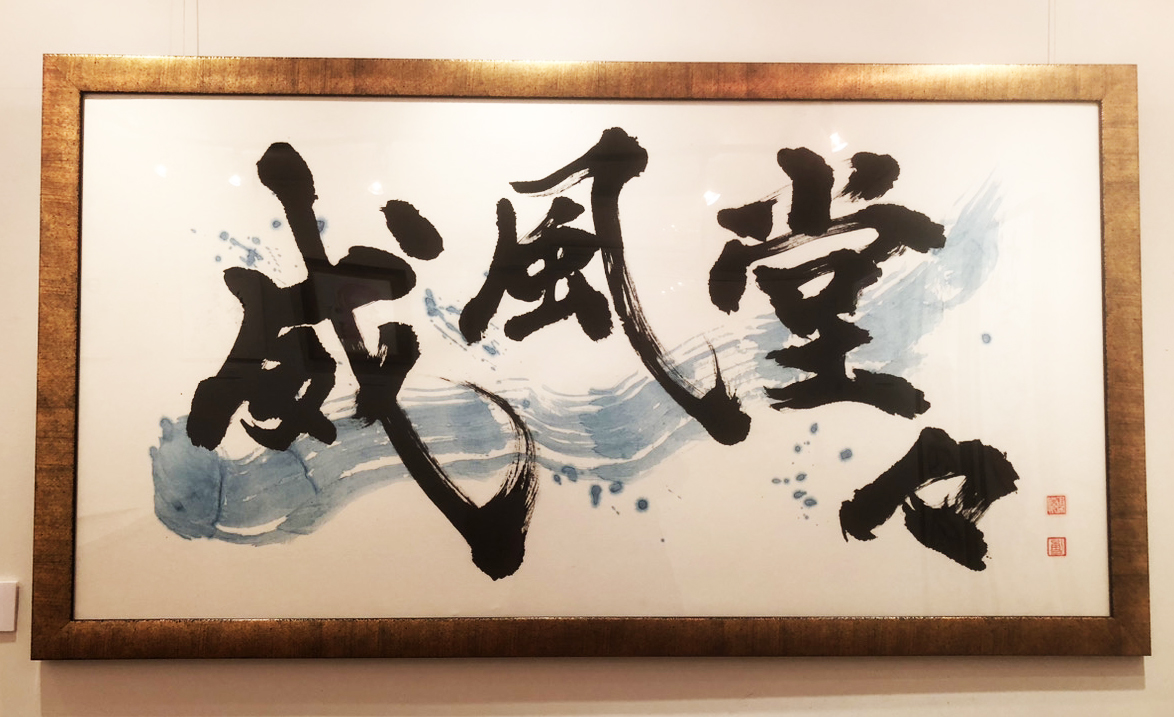 威風堂々